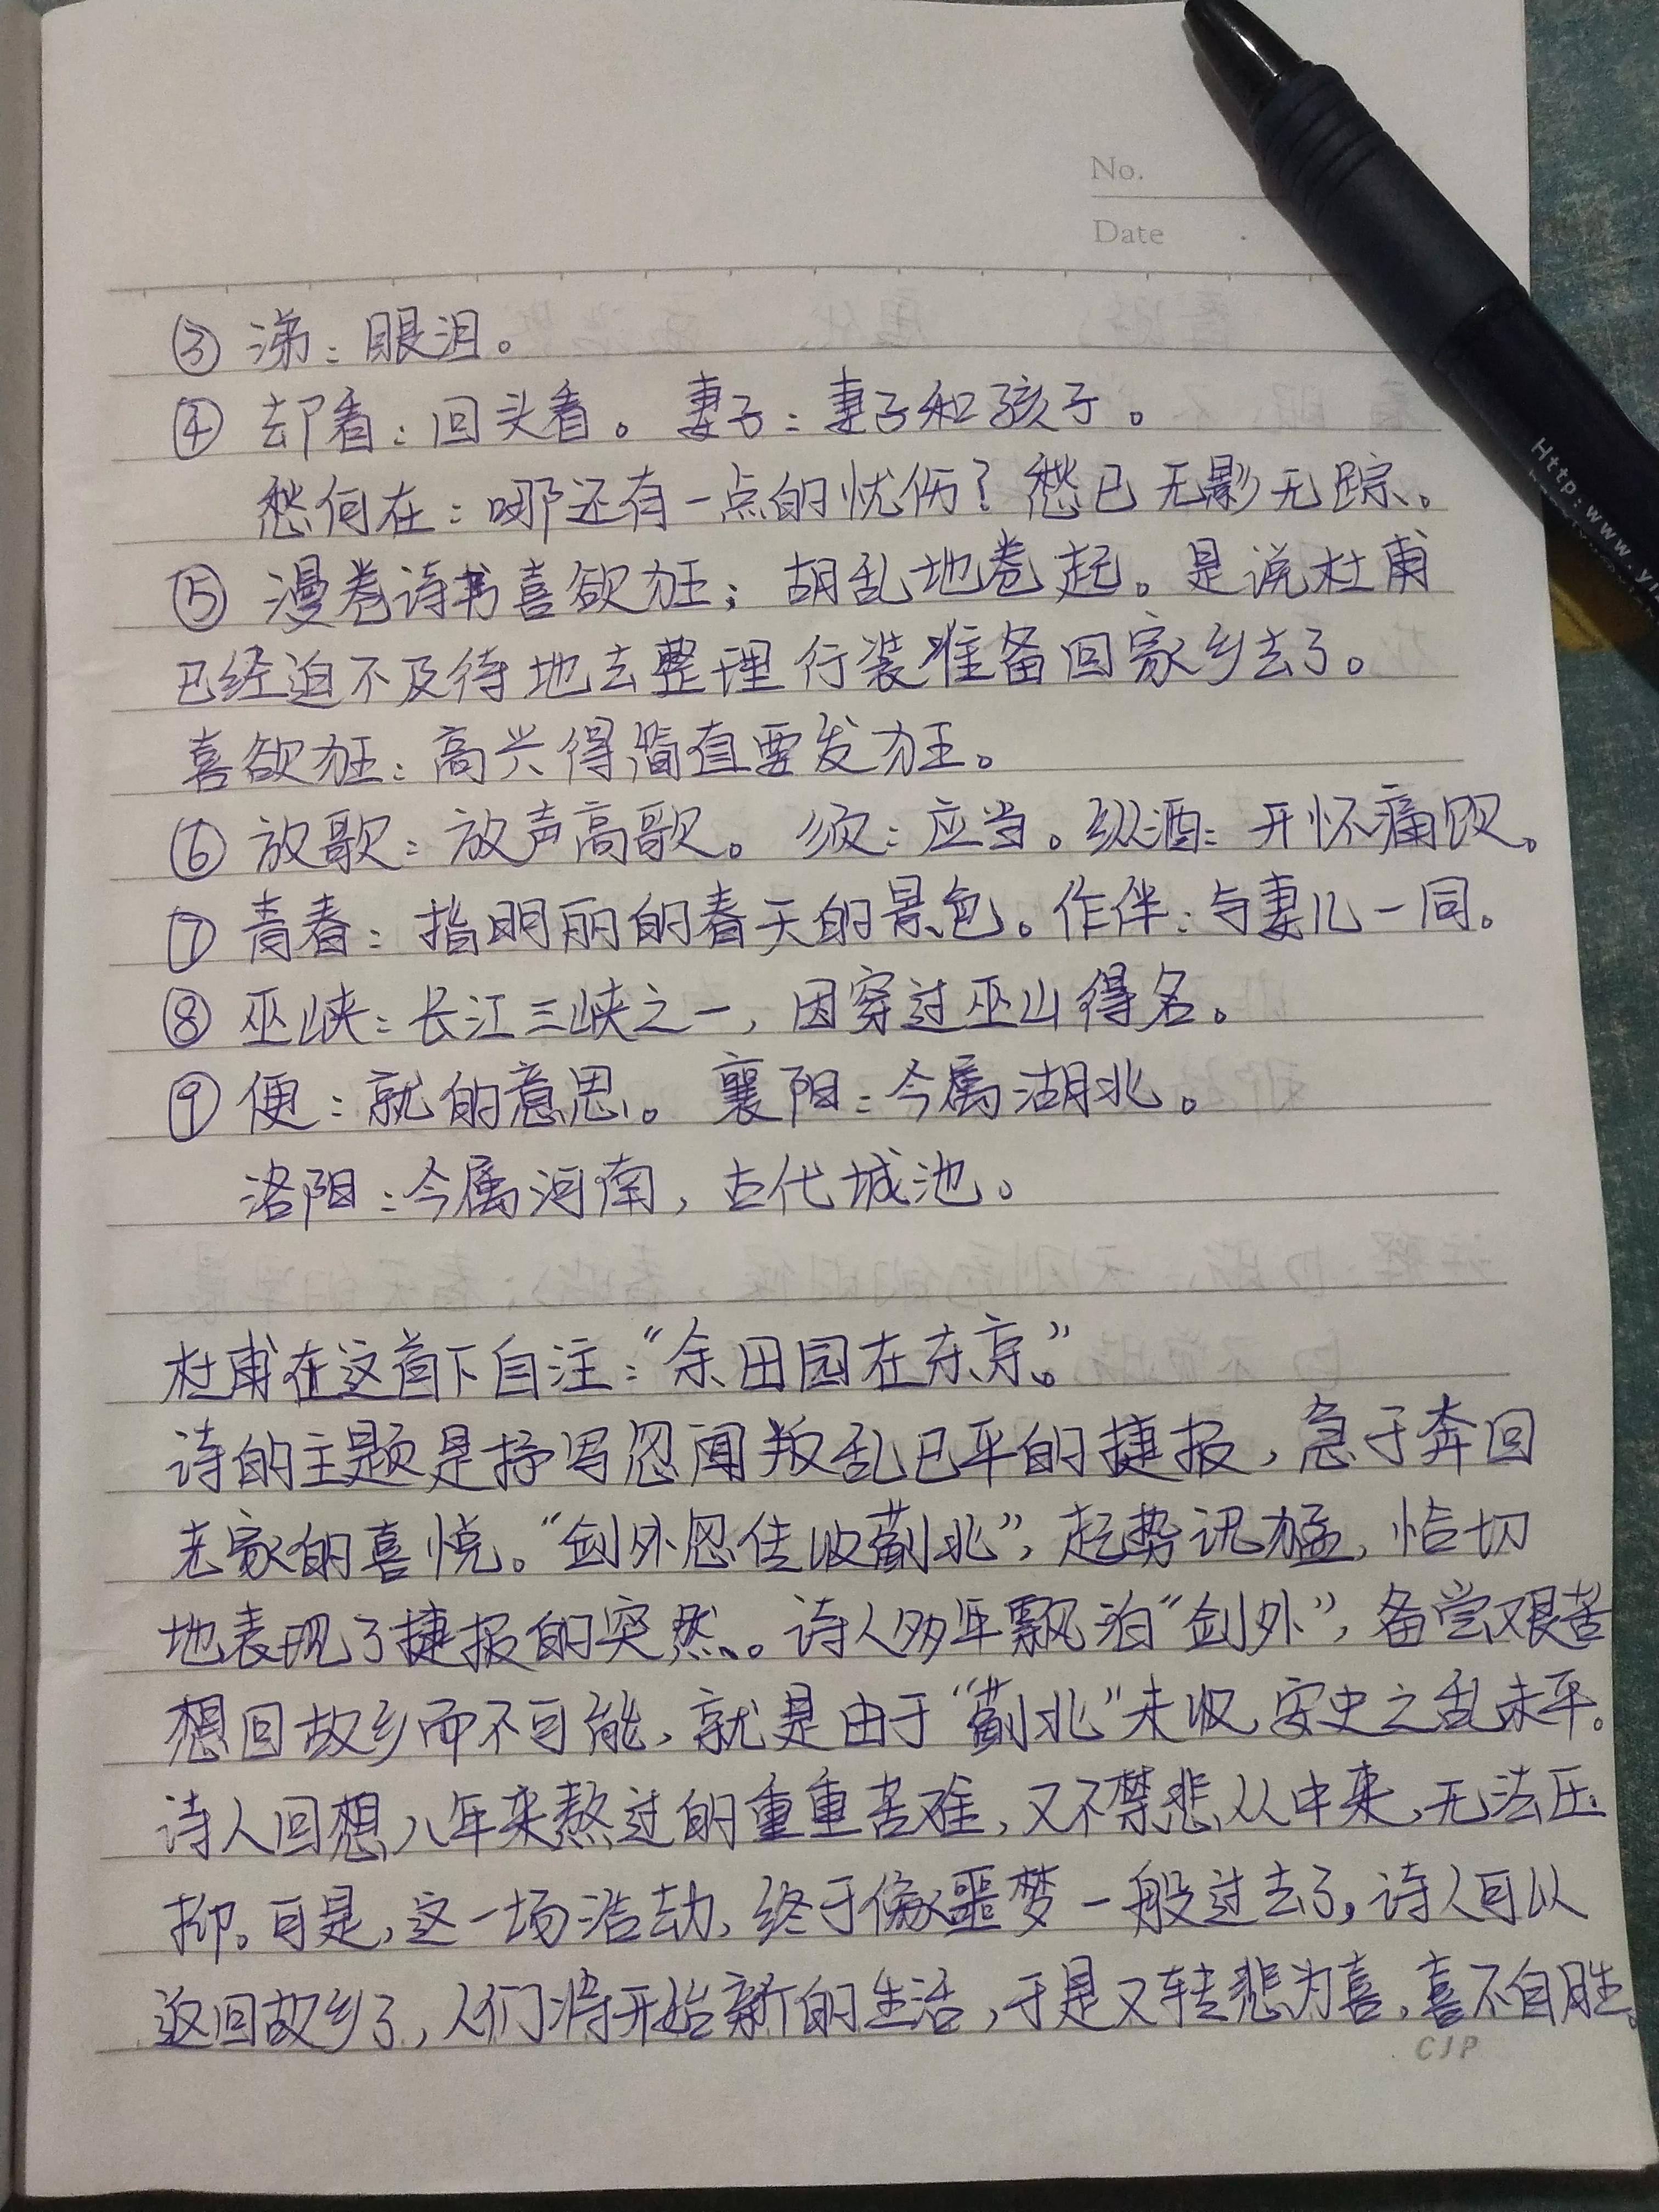 No.
Date
③ 涕：眼泪。
④ 却看：回头看。妻子：妻子和孩子。
愁何在：哪还有一点的忧伤？愁已无影无踪。
⑤ 漫卷诗书喜欲狂；胡乱地卷起。是说杜甫
已经迫不及待地去整理行装准备回家乡去了。
喜欲狂：高兴得简直要发狂。
⑥ 放歌：放声高歌。须：应当。纵酒：开怀痛饮。
⑦ 青春：指明丽的春天的景色。作伴：与妻儿一同。
⑧ 巫峡：长江三峡之一，因穿过巫山得名。
⑨ 便：就的意思。襄阳：今属湖北。
洛阳：今属河南，古代城池。
杜甫在这首下自注：“余田园在东京。”
诗的主题是抒写忽闻叛乱已平的捷报，急于奔回
老家的喜悦。“剑外忽传收蓟北”，起势迅猛，恰切
地表现了捷报的突然。诗人多年飘泊“剑外”，备尝艰苦
想回故乡而不可能，就是由于“蓟北”未收，安史之乱未平。
诗人回想八年来熬过的重重苦难，又不禁悲从中来，无法压
抑。可是，这一场浩劫，终于像噩梦一般过去了，诗人可以
返回故乡了，人们将开始新的生活，于是又转悲为喜，喜不自胜。
CJP
Http:www.yi